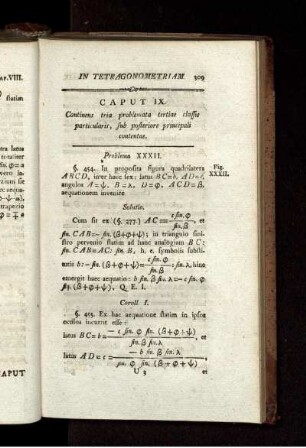 IN TETRAGONOMETRIAM. 309
CAPUT IX.
Continens tria problemata tertiae classis
particularis, sub posteriore principali
contentae.
Problema XXXII.
§. 454. In proposita figura quadrilatera
Fig. XXXII.
ABCD, inter haec sex: latus BC=b, AD=c,
angulos A=ψ, B=λ, D=φ, ACD=β,
aequationem invenire
Solutio.
Cum sit ex (§. 277.) AC = c sin. φ / sin. β, et
sin. CAB = - sin. (β+φ+ψ); in triangulo sinistro
pervenio statim ad hanc analogiam BC:
sin. CAB = AC: sin. B, h. e. symbolis substitutis
b: - sin. (β+φ+ψ) = c sin. φ / sin. β : sin. λ, hinc
emergit haec aequatio: b sin. β sin. λ = - c sin.
φ sin. (β+φ+ψ), Q. E. I.
Coroll. I.
§. 455. Ex hac aequatione statim in ipsos
oculos incurrit esse:
latus BC = b = - c sin. φ sin. (β+φ+ψ) / sin. β sin. λ, et
latus AD = c = - b sin. β sin. λ / sin. φ sin. (β+φ+ψ)
U 3 et
ar.VIII.
statim
In
latus
CAPUT